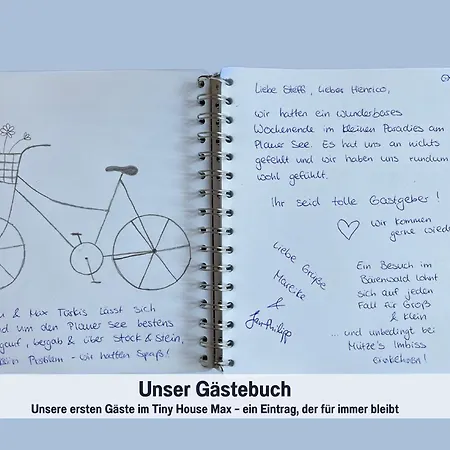 & Max Türkis lässt sich
um den Plauer See bestens
bergab & über Stock & Stein,
Problem - wir hatten Spaß!
Liebe Steffi, Lieber Henrico,
wir hatten ein wunderbares
Wochenende im kleinen Paradies am
Plauer See. Es hat uns an nichts
gefehlt und wir haben uns rundum
wohl gefühlt.
Ihr seid tolle Gastgeber!
Wir kommen
gerne wieder
Liebe Grüße
Mareike
&
Jan-Philipp
Ein Besuch im
Bärenwald lohnt
sich auf jeden
Fall für Groß
& Klein
... und unbedingt bei
Mütze's Imbiss
einkehren!
Unser Gästebuch
Unsere ersten Gäste im Tiny House Max – ein Eintrag, der für immer bleibt